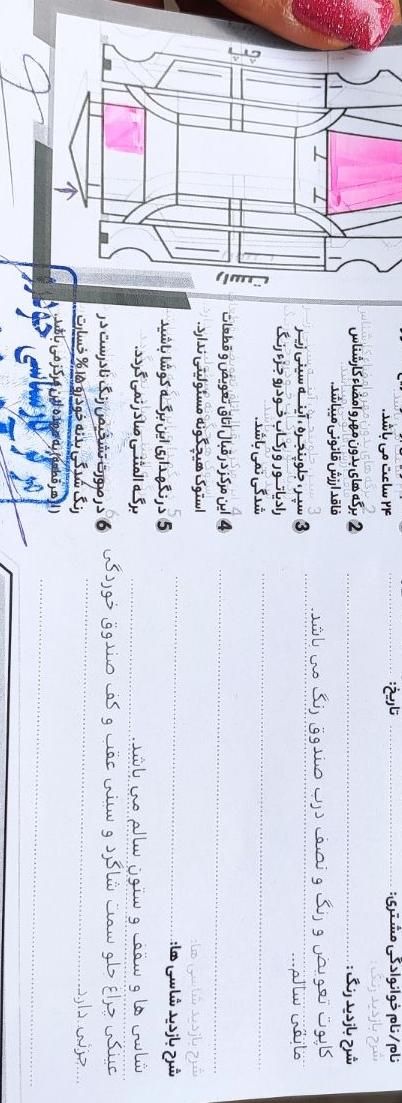 نام/نام خوانوادگی مشتری:
تاریخ:
شرح بازدید رنگ:
کاپوت تعویض و رنگ و نصف درب صندوق رنگ می باشد.
مابقی سالم...
شرح بازدید شاسی ها:
شاسی ها و سقف و ستون سالم می باشد.
عینکی چراغ جلو سمت شاگرد و سینی عقب و کف صندوق خوردگی
جزئی دارد.
۲۴ ساعت می باشد.
2 برگه های بدون مهر و امضاء کارشناس
فاقد ارزش قانونی میباشد.
3 سپر، جلوپنجره، آیینه، سینی زیر
رادیاتور و رکاب خودرو جزء رنگ
شدگی نمی باشد.
4 این مرکز در قبال اتاق تعویض و قطعات
استوک هیچگونه مسئولیتی ندارد.
5 در نگهداری این برگه کوشا باشید
برگه المثنی صادر نمی گردد.
6 در صورت تشخیص رنگ نادرست در
رنگ شدگی بدنه خودرو ۱۵% خسارت
چپ
راست